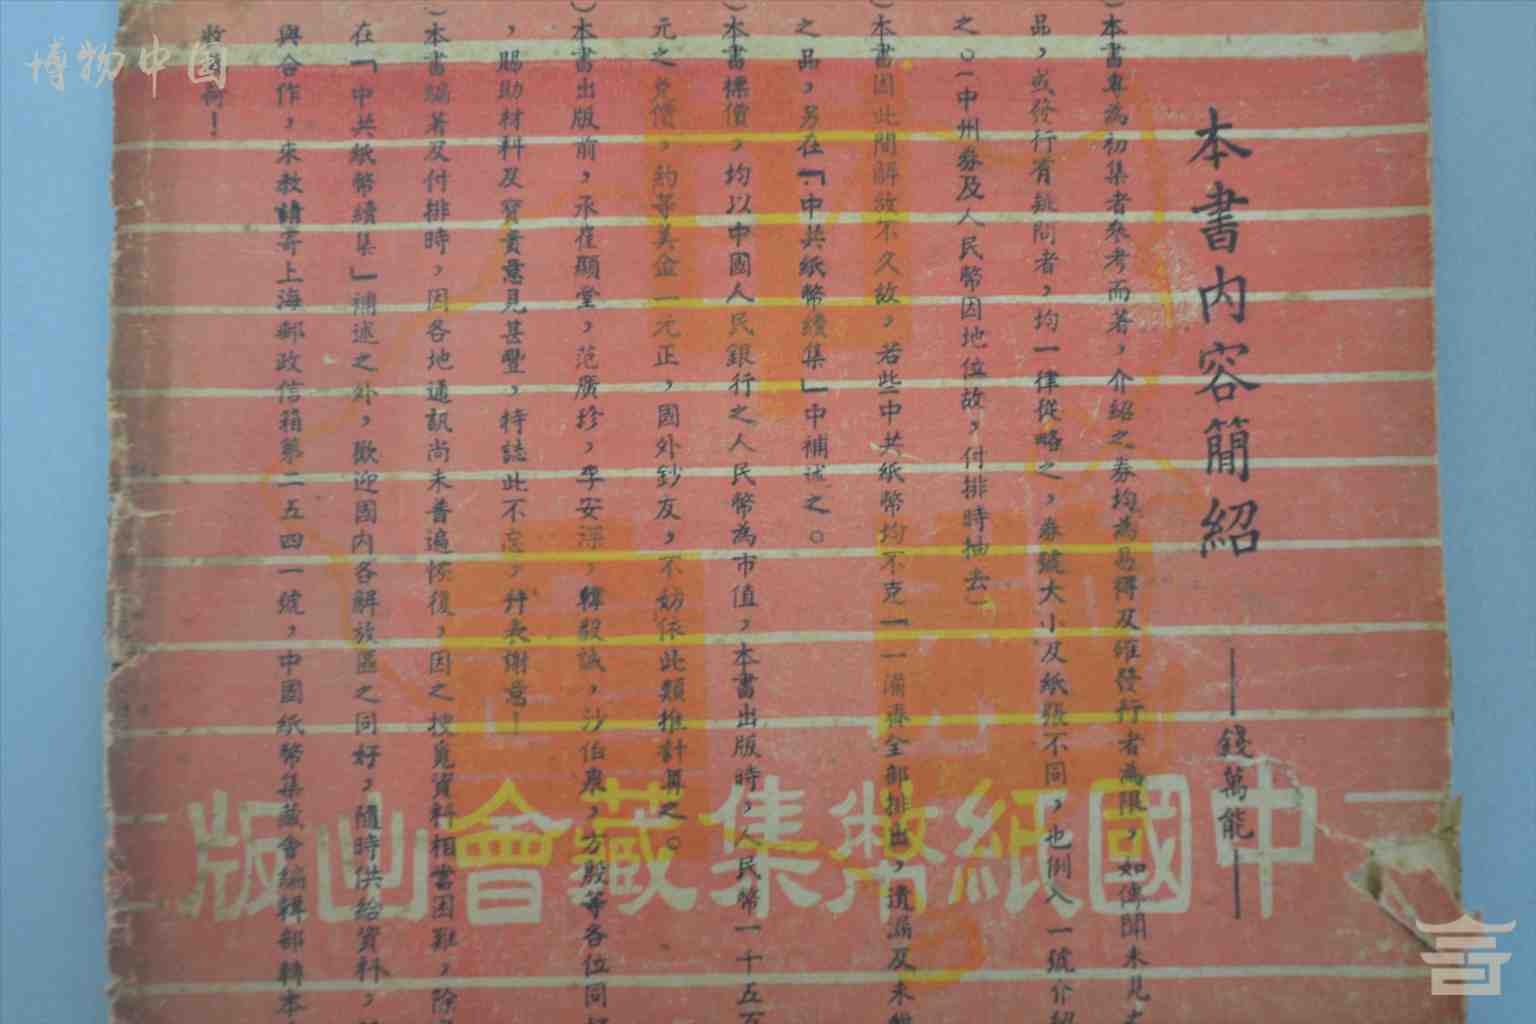 博物中国
本書內容簡紹
——錢萬能——
本書專為初集者參考而著，介紹之券均為易得及確發行者為限，如傳聞未見之
品，或發行有疑問者，均一律從略之，券號大小及紙張不同，也例入一號介紹
之。（中州券及人民幣因地位故，付排時抽去）
本書因此間解放不久故，若些中共紙幣均不克「一一滿齊全部排出，遺漏及未能
之品，另在「中共紙幣續集」中補述之。
本書標價，均以中國人民銀行之人民幣為市值，本書出版時，人民幣一千五百
元之券價，約等美金一元正，國外鈔友，不妨依此類推計算之。
本書出版前，承崔顯堂，范廣珍，李安深，韓毅誠，沙伯泉，方殷等各位同好
，賜助材料及寶貴意見甚豐，特誌此不忘，幷表謝意！
本書編著及付排時，因各地通訊尚未普遍恢復，因之搜覓資料相當困難，除
在「中共紙幣續集」補述之外，歡迎國內各解放區之同好，隨時供給資料，
與合作，來教請寄上海郵政信箱第二五四一號，中國紙幣集藏會編輯部轉本
收
！
中國紙幣集藏會出版